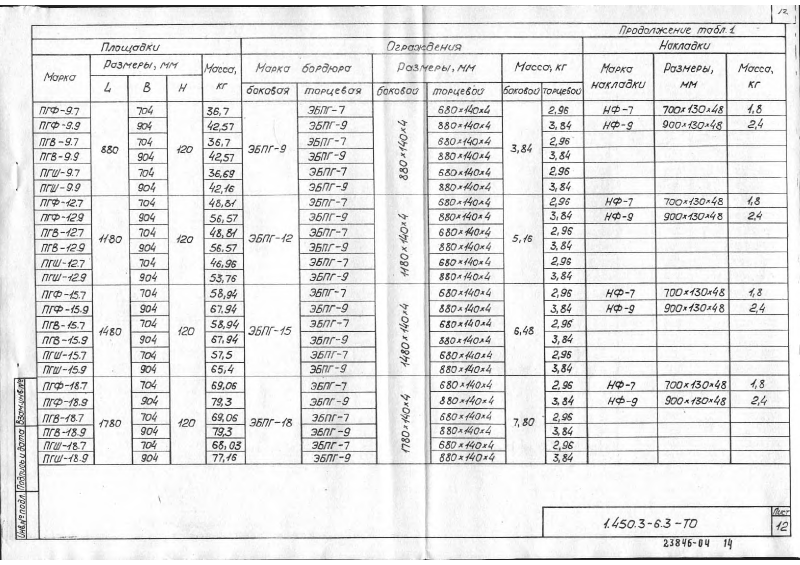 12
Продолжение табл. 1
Площадки Ограждения Накладки
Марка Размеры, мм Масса, кг Марка бордюра Размеры, мм Масса, кг Марка накладки Размеры, мм Масса, кг
L B H боковая торцевая боковой торцевой боковой торцевой
ПГФ-9.7 880 704 120 36,7 ЭБПГ-9 ЭБПГ-7 880×140×4 680×140×4 3,84 2,96 НФ-7 700×130×48 1,8
ПГФ-9.9 904 42,57 ЭБПГ-9 880×140×4 3,84 НФ-9 900×130×48 2,4
ПГВ-9.7 704 36,7 ЭБПГ-7 680×140×4 2,96
ПГВ-9.9 904 42,57 ЭБПГ-9 880×140×4 3,84
ПГШ-9.7 704 36,69 ЭБПГ-7 680×140×4 2,96
ПГШ-9.9 904 42,16 ЭБПГ-9 880×140×4 3,84
ПГФ-12.7 1180 704 120 48,81 ЭБПГ-12 ЭБПГ-7 1180×140×4 680×140×4 5,16 2,96 НФ-7 700×130×48 1,8
ПГФ-12.9 904 56,57 ЭБПГ-9 880×140×4 3,84 НФ-9 900×130×48 2,4
ПГВ-12.7 704 48,81 ЭБПГ-7 680×140×4 2,96
ПГВ-12.9 904 56,57 ЭБПГ-9 880×140×4 3,84
ПГШ-12.7 704 46,96 ЭБПГ-7 680×140×4 2,96
ПГШ-12.9 904 53,76 ЭБПГ-9 880×140×4 3,84
ПГФ-15.7 1480 704 120 58,94 ЭБПГ-15 ЭБПГ-7 1480×140×4 680×140×4 6,48 2,96 НФ-7 700×130×48 1,8
ПГФ-15.9 904 67,94 ЭБПГ-9 880×140×4 3,84 НФ-9 900×130×48 2,4
ПГВ-15.7 704 58,94 ЭБПГ-7 680×140×4 2,96
ПГВ-15.9 904 67,94 ЭБПГ-9 880×140×4 3,84
ПГШ-15.7 704 57,5 ЭБПГ-7 680×140×4 2,96
ПГШ-15.9 904 65,4 ЭБПГ-9 880×140×4 3,84
ПГФ-18.7 1780 704 120 69,06 ЭБПГ-18 ЭБПГ-7 1780×140×4 680×140×4 7,80 2,96 НФ-7 700×130×48 1,8
ПГФ-18.9 904 79,3 ЭБПГ-9 880×140×4 3,84 НФ-9 900×130×48 2,4
ПГВ-18.7 704 69,06 ЭБПГ-7 680×140×4 2,96
ПГВ-18.9 904 79,3 ЭБПГ-9 880×140×4 3,84
ПГШ-18.7 704 68,03 ЭБПГ-7 680×140×4 2,96
ПГШ-18.9 904 77,16 ЭБПГ-9 880×140×4 3,84
Инв.№ подл. Подпись и дата Взам.инв.№
1.450.3-6.3-ТО
Лист
12
23846-04 14